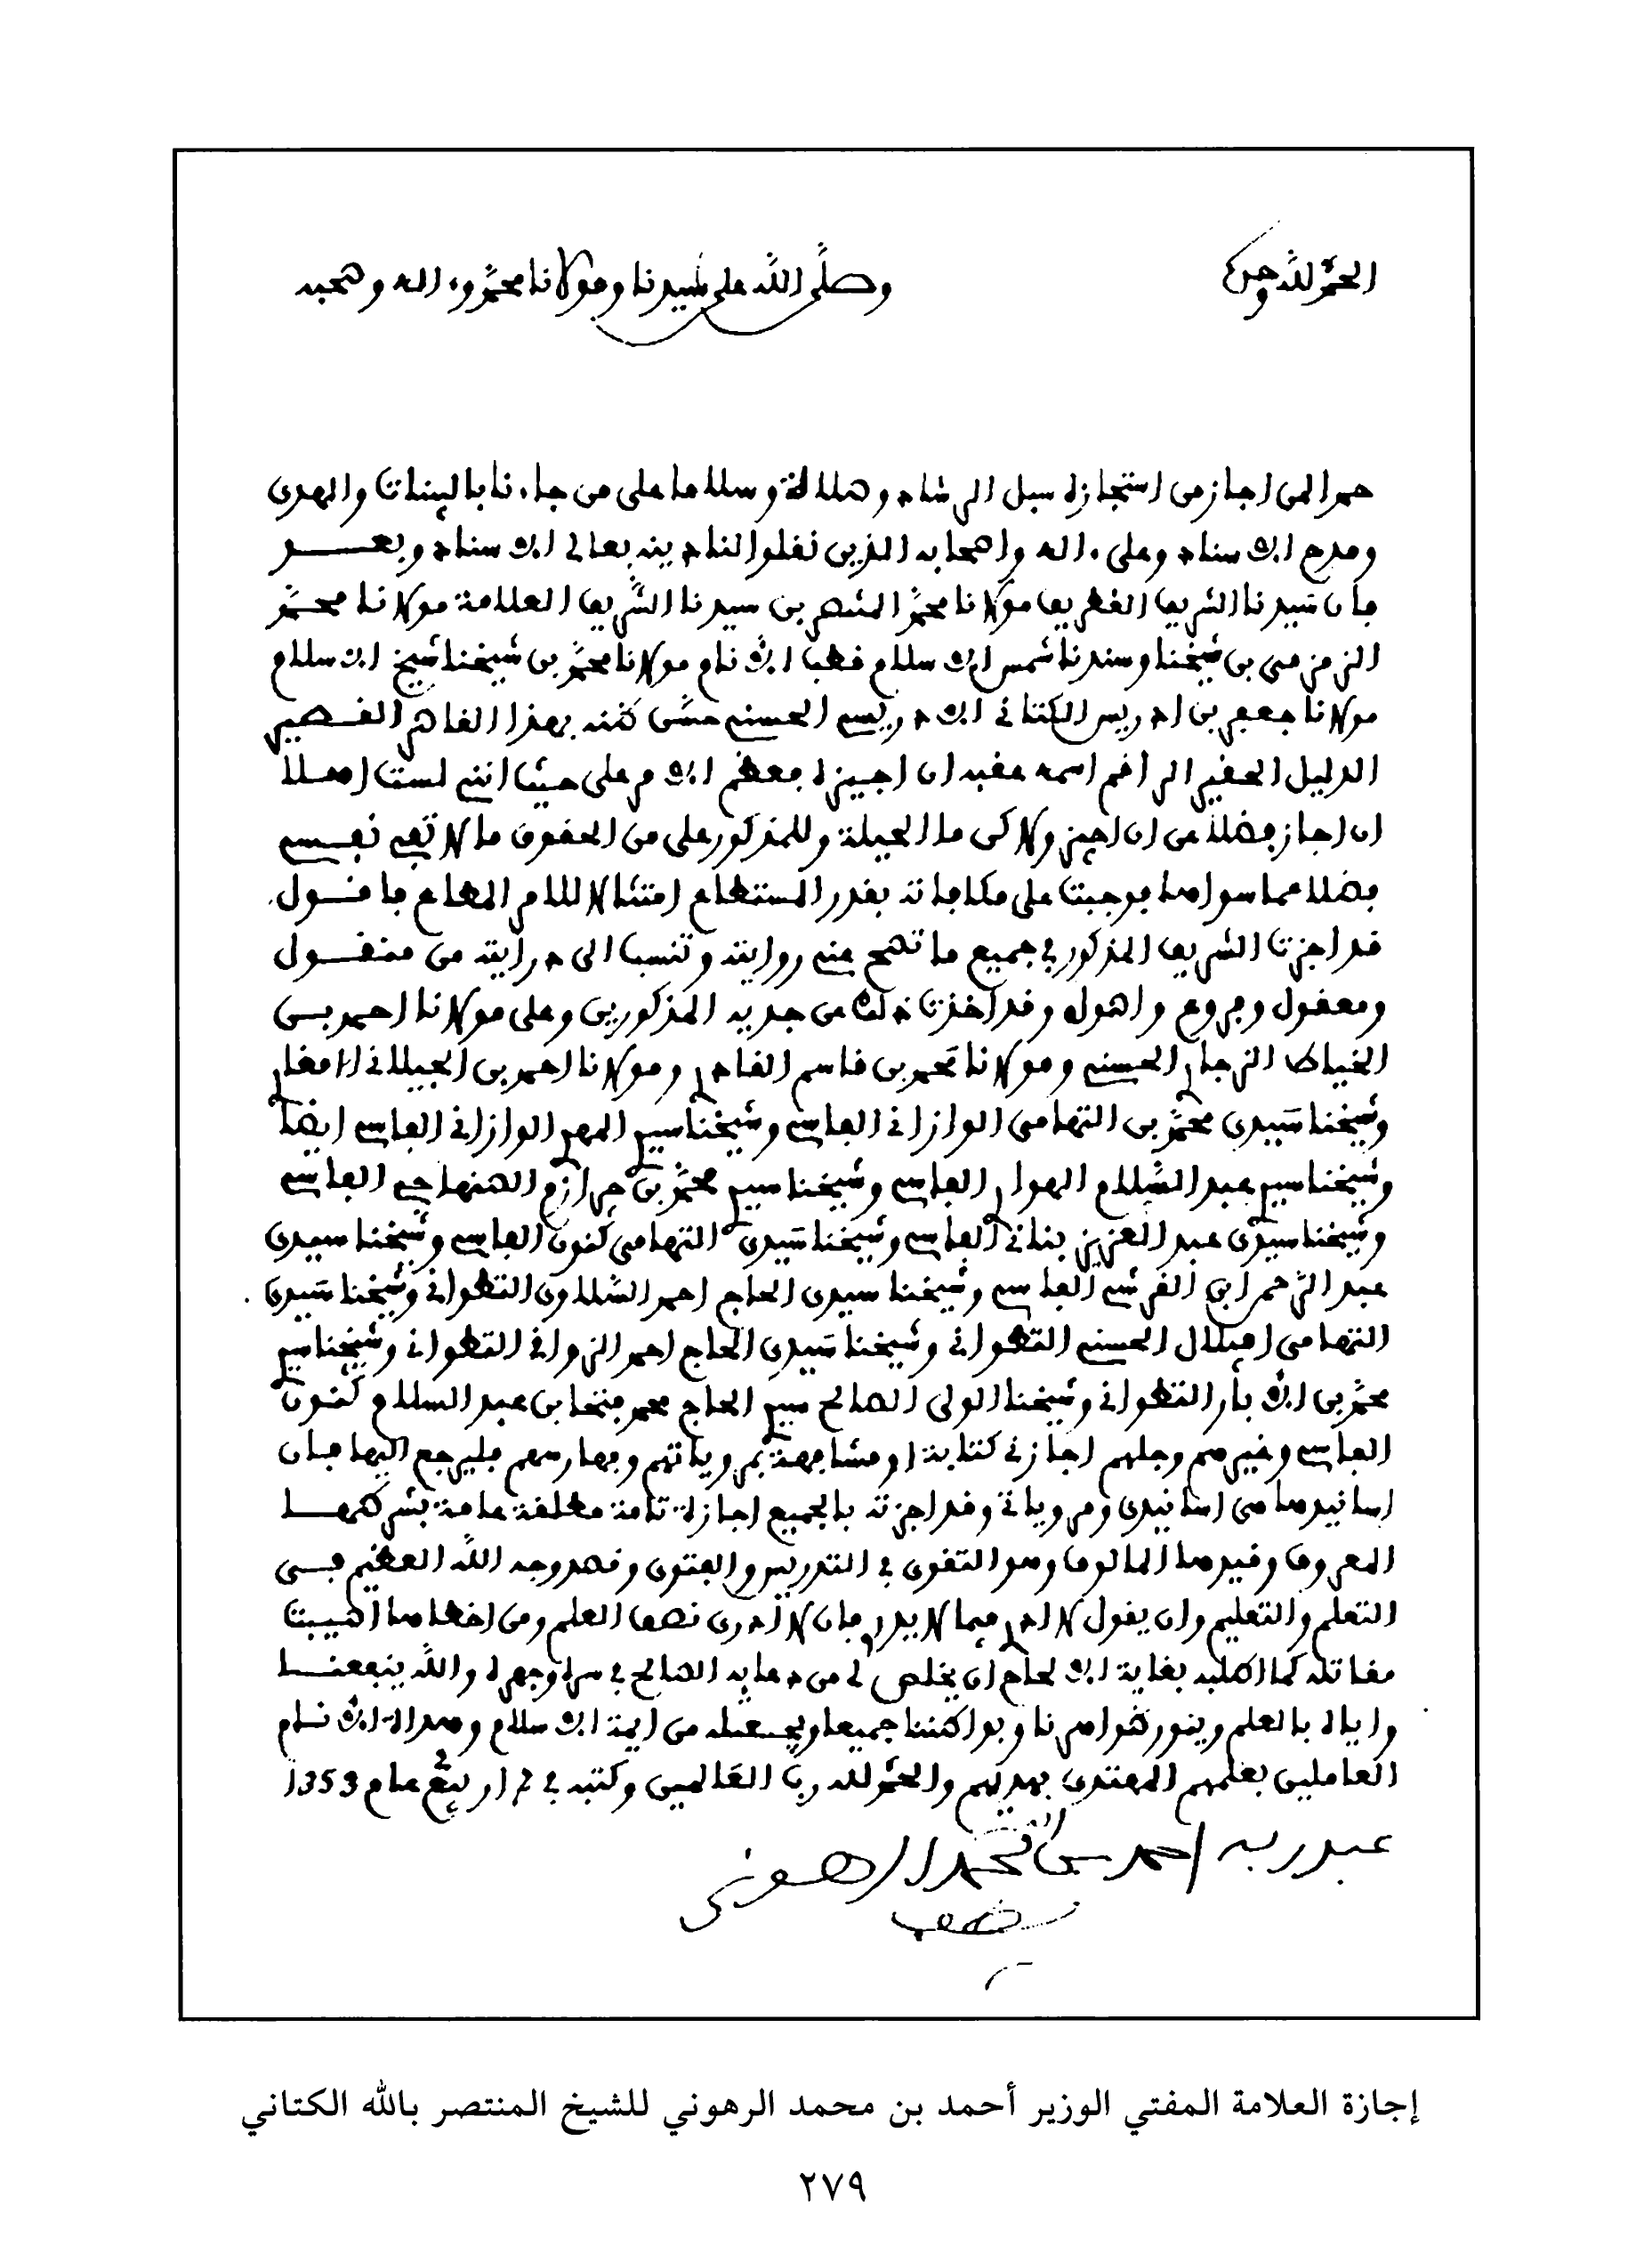 الحمد لله وحده
وصلى الله على سيدنا ومولانا محمد وءاله وصحبه
حمدا لمن اجاز من استجازه سبل الرشاد وصلاة وسلاما على من جاءنا بالبينات والهدى
وعلى ءاله واصحابه الذين نقلوا لنا دينه بعالى الاسناد وبعد
فان سيدنا الشريف الغطريف مولانا محمد المنتصر بن سيدنا الشريف العلامة مولانا محمد
الزمزمى بن شيخنا وسندنا شمس الاسلام قطب الانام مولانا محمد بن شيخنا شيخ الاسلام
مولانا جعفر بن ادريس الكتانى الادريسى الحسنى حسن ظنه بهذا القاصر القصير
الذليل الحقير الراقم اسمه عقبه ان اجيزه فعظم الامر على حيث اننى لست اهلا
ان اجاز فضلا عن ان اجيز ولاكن ما الحيلة وللمذكور على من الحقوق ما لا تفى نفسى
فضلا عما سواها فوجبت على مكافاته بقدر المستطاع امتثالا للامر المطاع فاقول
قد اجزت الشريف المذكور فى جميع ما تصح عنى روايته وتنسب الى درايته من منقول
ومعقول وفروع واصول وقد اخذت ذلك عن جديه المذكورين وعلى مولانا احمد بن
الخياط الزجارى الحسنى ومولانا محمد بن قاسم القادرى ومولانا احمد بن الجيلالى الامغارى
وشيخنا سيدى محمد بن التهامى الوازانى الفاسى وشيخنا سيدى المهدى الوازانى الفاسى ايضا
وشيخنا سيدى عبد السلام الهوارى الفاسى وشيخنا سيدى محمد بن حرازم الصنهاجى الفاسى
وشيخنا سيدى عبد العزيز بنانى الفاسى وشيخنا سيدى التهامى كنون الفاسى وشيخنا سيدى
عبد الرحمن ابن القرشى الفاسى وشيخنا سيدى الحاج احمد السلاوى التطوانى وشيخنا سيدى
التهامى افيلال الحسنى التطوانى وشيخنا سيدى الحاج احمد الزواقى التطوانى وشيخنا سيدى
محمد بن الابار التطوانى وشيخنا الولى الصالح سيدى الحاج محمد بن عبد السلام كنون
الفاسى وغيرهم وجلهم اجازنى كتابة او مشافهة بمروياتهم وفهارسهم فليرجع اليها فان
اسانيدها هى اسانيدى ومروياتى وقد اجزته بالجميع اجازة تامة مطلقة عامة بشرطها
المعروف وقيدها المالوف وهو التقوى فى التدريس والفتوى وقصد وجه الله العظيم فى
التعلم والتعليم وان يقول لا ادرى فيما لا يدرى فان لا ادرى نصف العلم ومن اخطاها اصيبت
مقاتله كما اطلبه بغاية الالحاح ان يخلص لى من دعايه الصالح فى سره وجهره والله ينفعنا
واياه بالعلم وينور ظواهرنا وبواطننا جميعا ويجعله من ايمة الاسلام وهداة الانام
العاملين بعلمهم المهتدى بهديهم والحمد لله رب العالمين وكتبه فى ربيع عام 1353
عبد ربه احمد بن محمد الرهونى
إجازة العلامة المفتي الوزير أحمد بن محمد الرهوني للشيخ المنتصر بالله الكتاني
٢٧٩